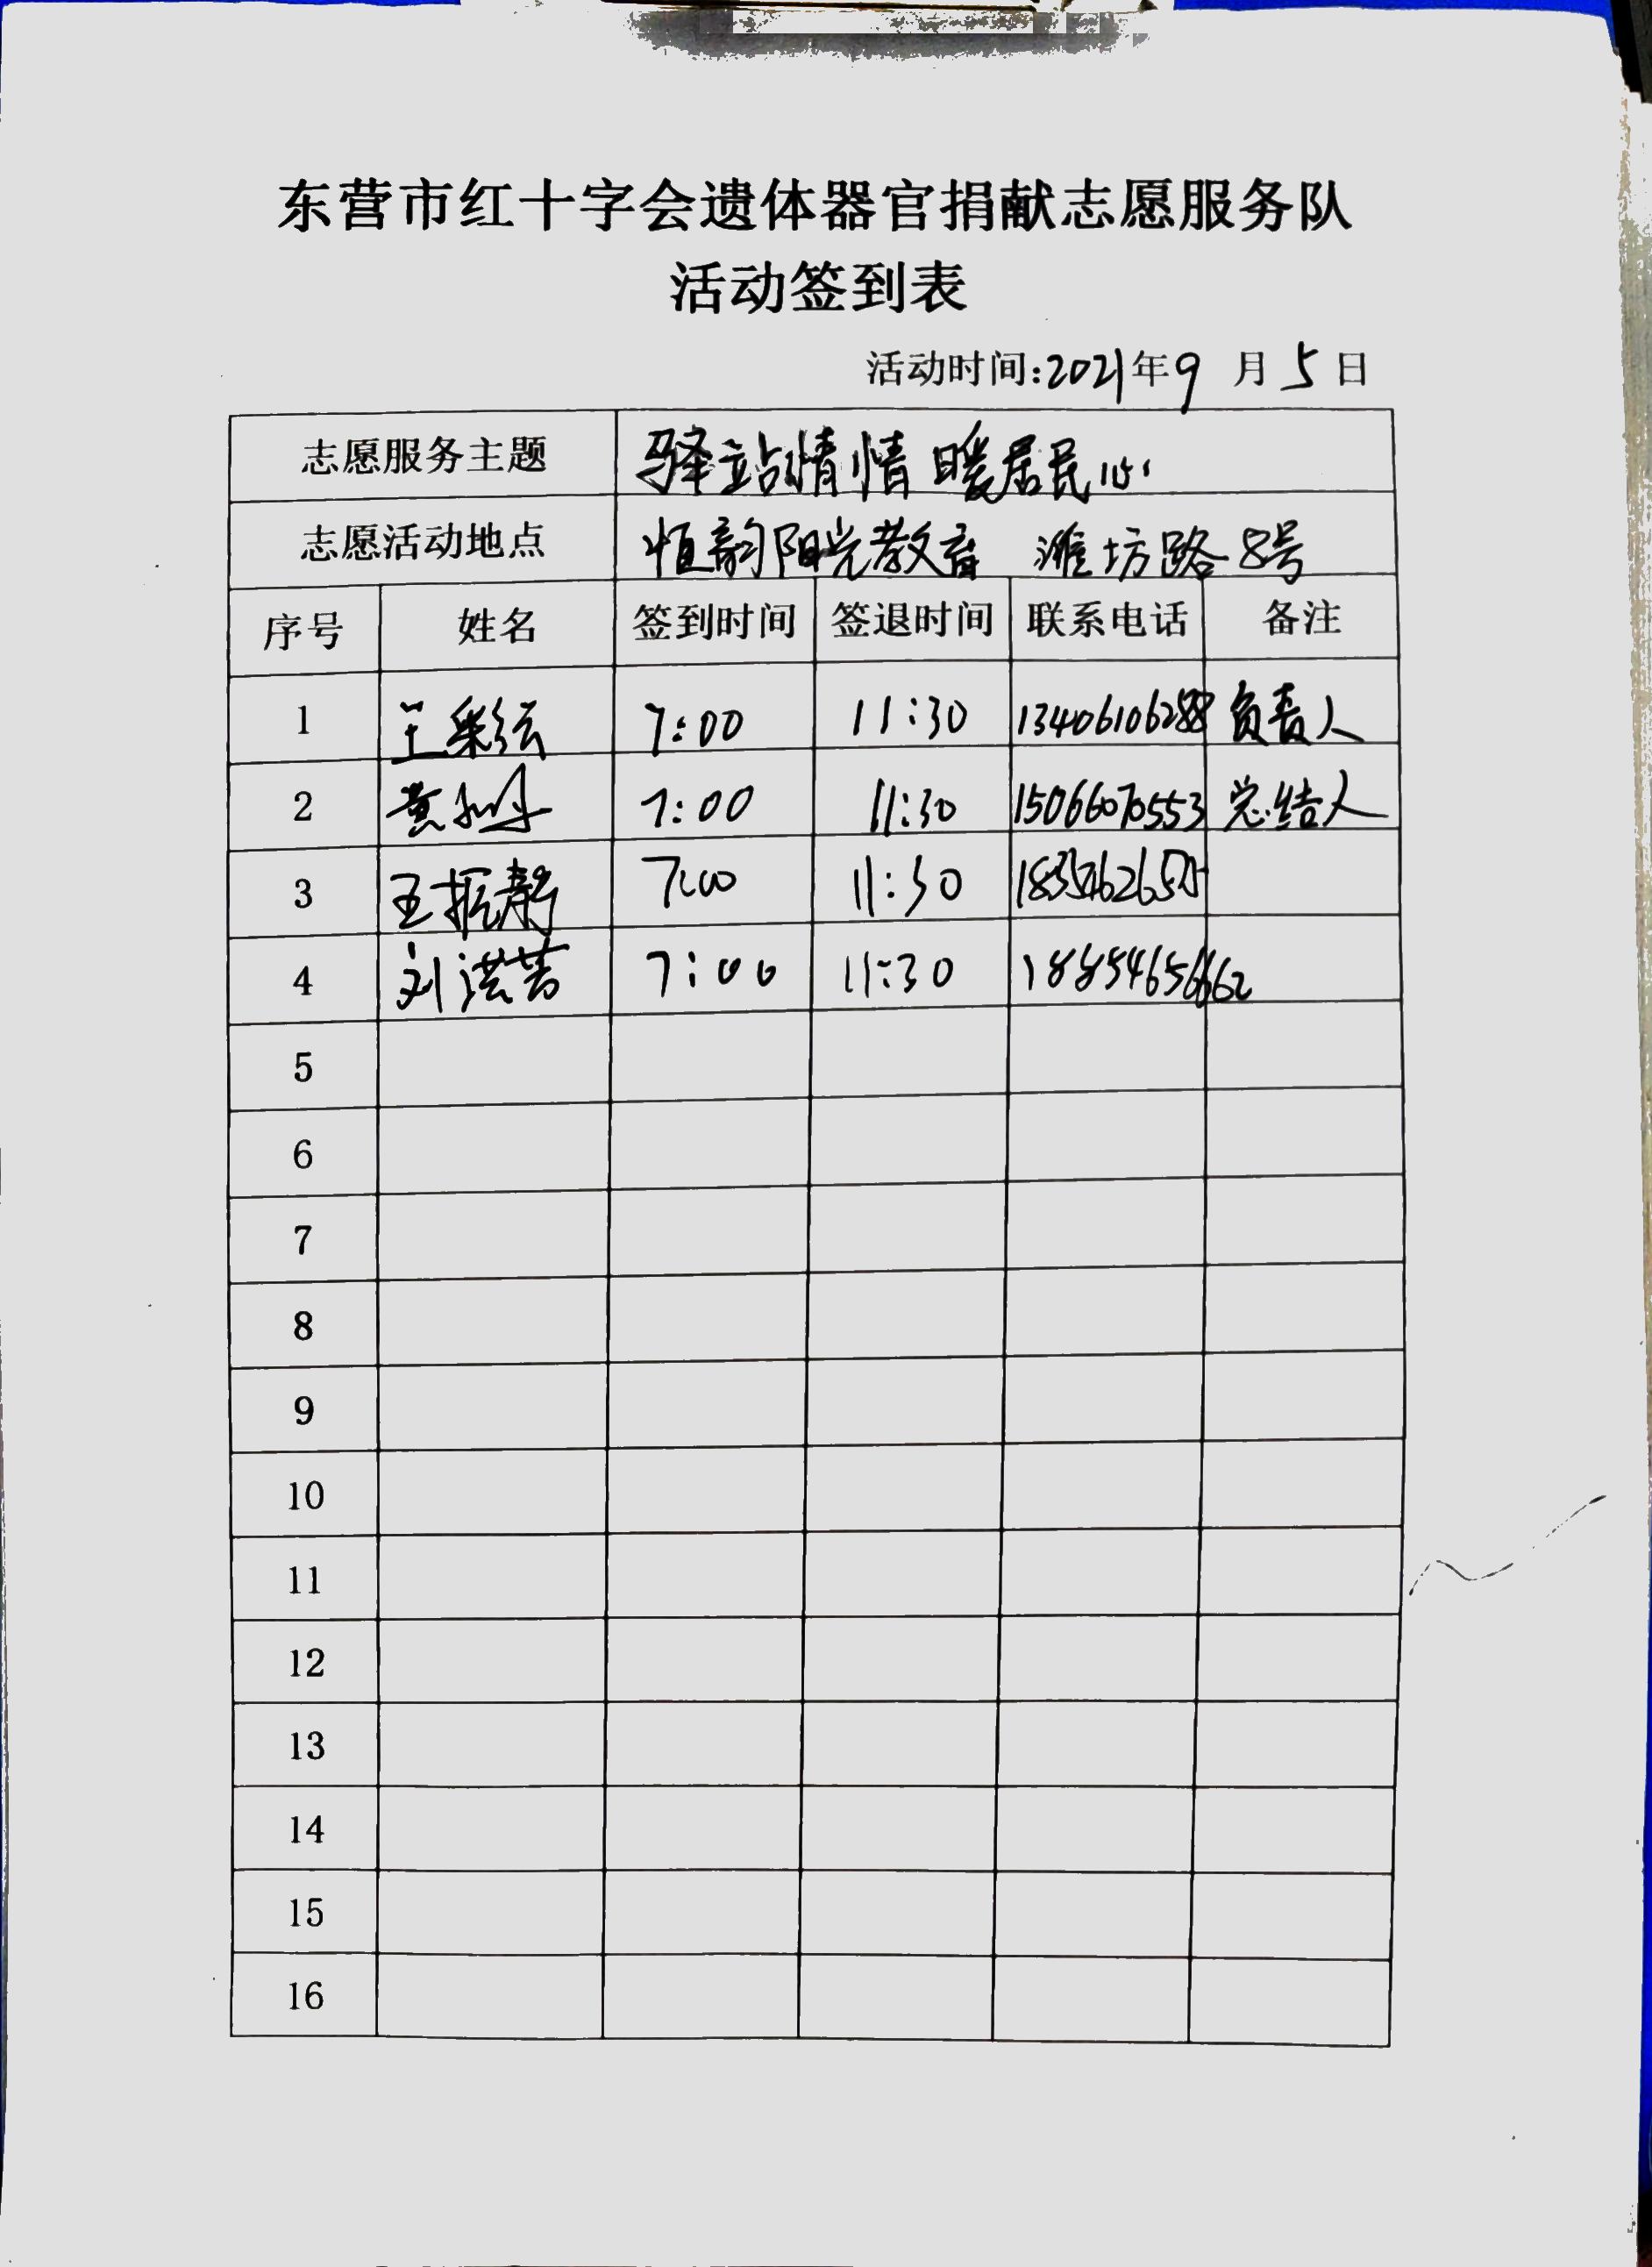 东营市红十字会遗体器官捐献志愿服务队
活动签到表
活动时间:2021年9月5日
志愿服务主题 驿站情情暖居民心
志愿活动地点 恒韵阳光教育 潍坊路8号
序号 姓名 签到时间 签退时间 联系电话 备注
1 王彩云 7:00 11:30 13406106288 负责人
2 黄 7:00 11:30 15066070553 总结人
3 王振静 7:00 11:30
4 刘洪芳 7:00 11:30 18854656662
5
6
7
8
9
10
11
12
13
14
15
16